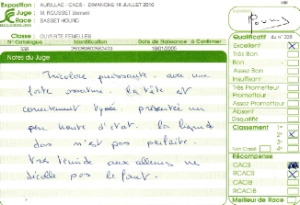 Exposition : AURILLAC - CACS - DIMANCHE 18 JUILLET 2010
Juge M. ROUSSET Bernard
Race BASSET HOUND
Classe : OUVERTE FEMELLES
N° Catalogue Identification Date de Naissance à Confirmer
Notes du Juge
Tricolore puissante avec une
forte ossature. La tête et
correctement typée. présentée un
peu haute d'état. La ligne de
dos n'est pas parfaite.
très timide aux allures ne
décolle pas le fouet.
Qualificatif du n° 338
Excellent
Très Bon
Bon
Assez Bon
Insuffisant
Très Prometteur
Prometteur
Assez Prometteur
Absent
Disqualifié
Classement
1 2
3 4
Non Classé
Récompense
CACS
RCACS
CACIB
RCACIB
Meilleur de Race